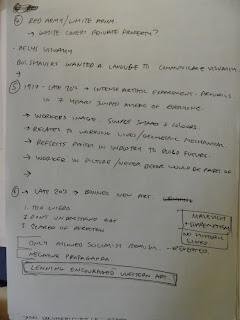 ④ RED ARMY/WHITE ARMY
→ WHITE COVER PRIVATE PROPERTY?
- RELYS VISUALLY
BOLSHEVIKS WANTED A LANGUAGE TO COMMUNICATE VISUALLY
→
⑤ 1917 - LATE 20'S → INTENSE ARTISTIC EXPERIMENT.
IN 7 YEARS JUMPED AHEAD OF EVERYONE.
→ WORKERS IMAGE. SIMPLE SHAPES & COLOURS.
→ RELATES TO WORKING LIVES/GEOMETRIC MECHANISM
→ REFLECTS FAITH IN INDUSTRY TO BUILD FUTURE.
→ WORKER IN PICTURE/NEVER BEFORE WOULD BE PARTS OF
→
⑥ → LATE 20'S → BANNED NEW ART.
1. TOO
2. DON'T UNDERSTAND ART
3. SCARED OF
MALEVICH
SUPREMATISM
NO
LINES
ONLY ALLOWED SOCIALIST REALISM. REPEATED.
BECAME PROPAGANDA
ENCOURAGED WESTERN ART